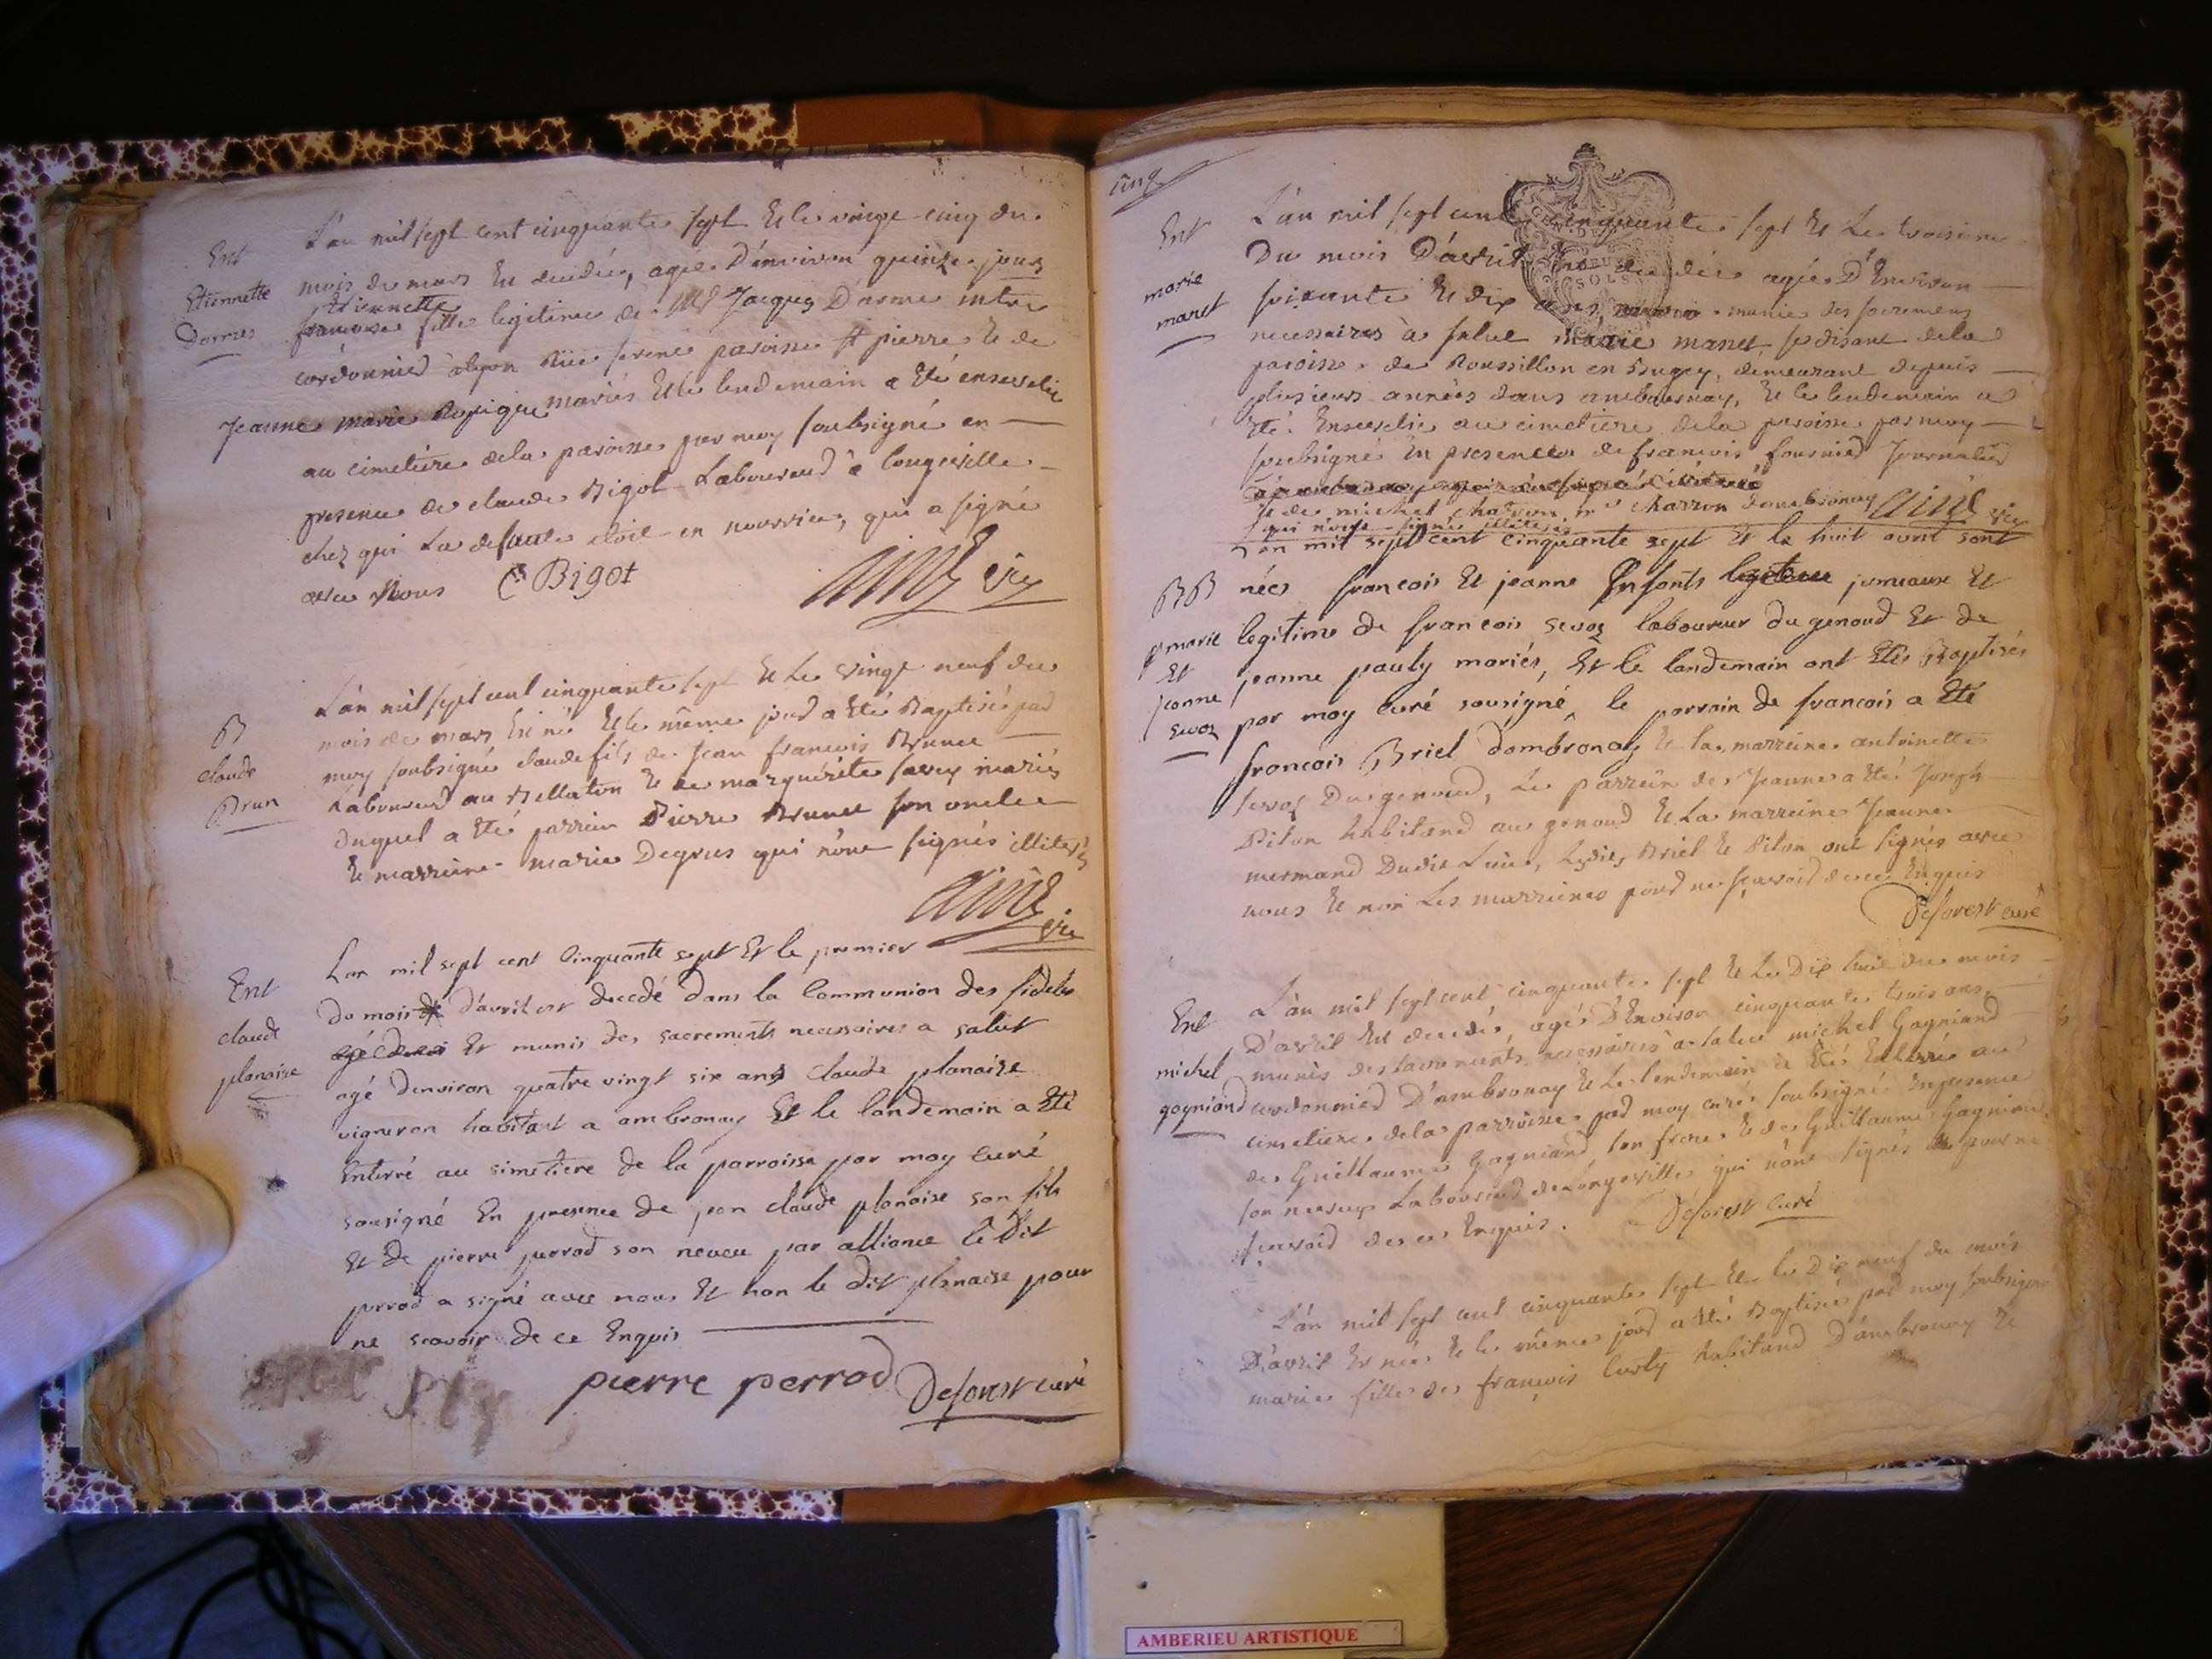 Ent
Etiennette
Dorme
L'an mil sept cent cinquante sept Et le vingt cinq du
mois de mars Est decedée, agée D'environ quinze jours
Etiennette
francoise fille legitime de Jacques Dorme mtre
cordonnier à lyon Rüe paroisse st pierre Et de
Jeanne marie mariés Et le lendemain a Eté ensevelie
au cimetiere de la paroisse par moy soubsigné en
presence de claude Bigot Laboureur à longeville
chez qui La defunte étoit en nourrice, qui a signé
avec Nous C Bigot
Aimé vic
B
claude
Brun
L'an mil sept cent cinquante sept Et Le vingt neuf du
mois de mars Est né Et le même jour a Eté Baptisé par
moy soubsigné claude fils de Jean francois Brunet
Laboureur au Bellaton Et de marguerite savey mariés
Duquel a Eté parrein Pierre Brunet son oncle
Et marreine marie Degrus qui n'ont signés illiterés
Aimé vic
Ent
claude
planaise
Lan mil sept cent Cinquante sept Et le premier
du mois d'avril est decedé dans la Communion des fideles
Et munis des sacrements necessaires a salut
agé denviron quatre vingt six ans Claude planaise
vigneron habitant a ambronay Et le landemain a Eté
Enterré au simetiere de la parroisse par moy Curé
sousigné En presence de jean claude planaise son fils
Et de pierre perrod son neveu par alliance le dit
perrod a signé avec nous Et non le dit planaise pour
ne scavoir de ce Enquis
pierre perrod Deforest curé
cinq
Ent
marie
manet
L'an mil sept cent cinquante sept Et Le troisieme
Du mois D'avril Est decedée agée D'Environ
soixante Et dix ans munie des sacremens
necessaires à salut Marie manet se disant de la
paroisse de Roussillon en Bugey, demeurant depuis
plusieurs années dans ambournay, Et le lendemain a
Eté Ensevelie au cimetiere de la paroisse par moy
soubsigné En presence de francois fournier Journalier
Et de michel charron m. charron dombronay Aimé vic
qui n'ont signé illiterés
Lan mil sept cent cinquante sept Et le huit avril sont
BB
marie
Et
jeanne
sevoz
nées francois Et jeanne Enfants legitime jumeaux Et
legitime de francois sevoz laboureur du genoud Et de
jeanne pauly mariés, Et le landemain ont Etés Baptisés
par moy Curé sousigné, le parrain de francois a Eté
francois Briel dombronay Et la marreine antoinette
sevoz Du genoud, Le parrein de Jeanne a Eté Joseph
Pilon habitand au genoud Et La marreine Jeanne
mermand Dudit Lieu, Lesdits Briel Et Pilon ont signés avec
nous Et non Les marreines pour ne sçavoir de ce Enquis
Deforest curé
Ent
michel
gagniand
L'an mil sept cent cinquante sept Et Le Dix huit du mois
D'avril Est decedé, agé D'Environ cinquante trois ans
munis des sacrements necessaires à salut michel Gagniand
cordonnier D'ambronay Et Le lendemain a Eté Enterré au
cimetiere de la parroisse par moy curé soubsigné En presence
de Guillaume Gagniand son frere Et de Guillaume Gagniand
son neveu Laboureur de Longeville qui n'ont signés pour ne
sçavoid de ce Enquis. Deforest Curé
L'an mil sept cent cinquante sept Et le Dix neuf du mois
D'avril Est née Et le même jour a Eté Baptisée par moy soubsigné
marie fille de francois Curty habitand D'ambronay Et
AMBERIEU ARTISTIQUE